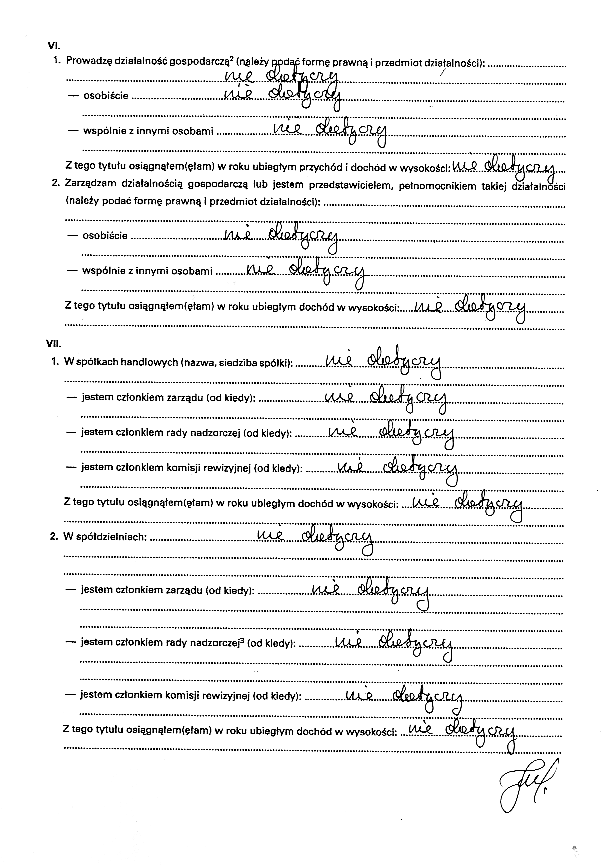 VI.
1. Prowadzę działalność gospodarczą² (należy podać formę prawną i przedmiot działalności): 
nie dotyczy
— osobiście nie dotyczy
— wspólnie z innymi osobami nie dotyczy
Z tego tytułu osiągnąłem(ęłam) w roku ubiegłym przychód i dochód w wysokości: nie dotyczy
2. Zarządzam działalnością gospodarczą lub jestem przedstawicielem, pełnomocnikiem takiej działalności
(należy podać formę prawną i przedmiot działalności):
— osobiście nie dotyczy
— wspólnie z innymi osobami nie dotyczy
Z tego tytułu osiągnąłem(ęłam) w roku ubiegłym dochód w wysokości: nie dotyczy
VII.
1. W spółkach handlowych (nazwa, siedziba spółki): nie dotyczy
— jestem członkiem zarządu (od kiedy): nie dotyczy
— jestem członkiem rady nadzorczej (od kiedy): nie dotyczy
— jestem członkiem komisji rewizyjnej (od kiedy): nie dotyczy
Z tego tytułu osiągnąłem(ęłam) w roku ubiegłym dochód w wysokości: nie dotyczy
2. W spółdzielniach: nie dotyczy
— jestem członkiem zarządu (od kiedy): nie dotyczy
— jestem członkiem rady nadzorczej³ (od kiedy): nie dotyczy
— jestem członkiem komisji rewizyjnej (od kiedy): nie dotyczy
Z tego tytułu osiągnąłem(ęłam) w roku ubiegłym dochód w wysokości: nie dotyczy